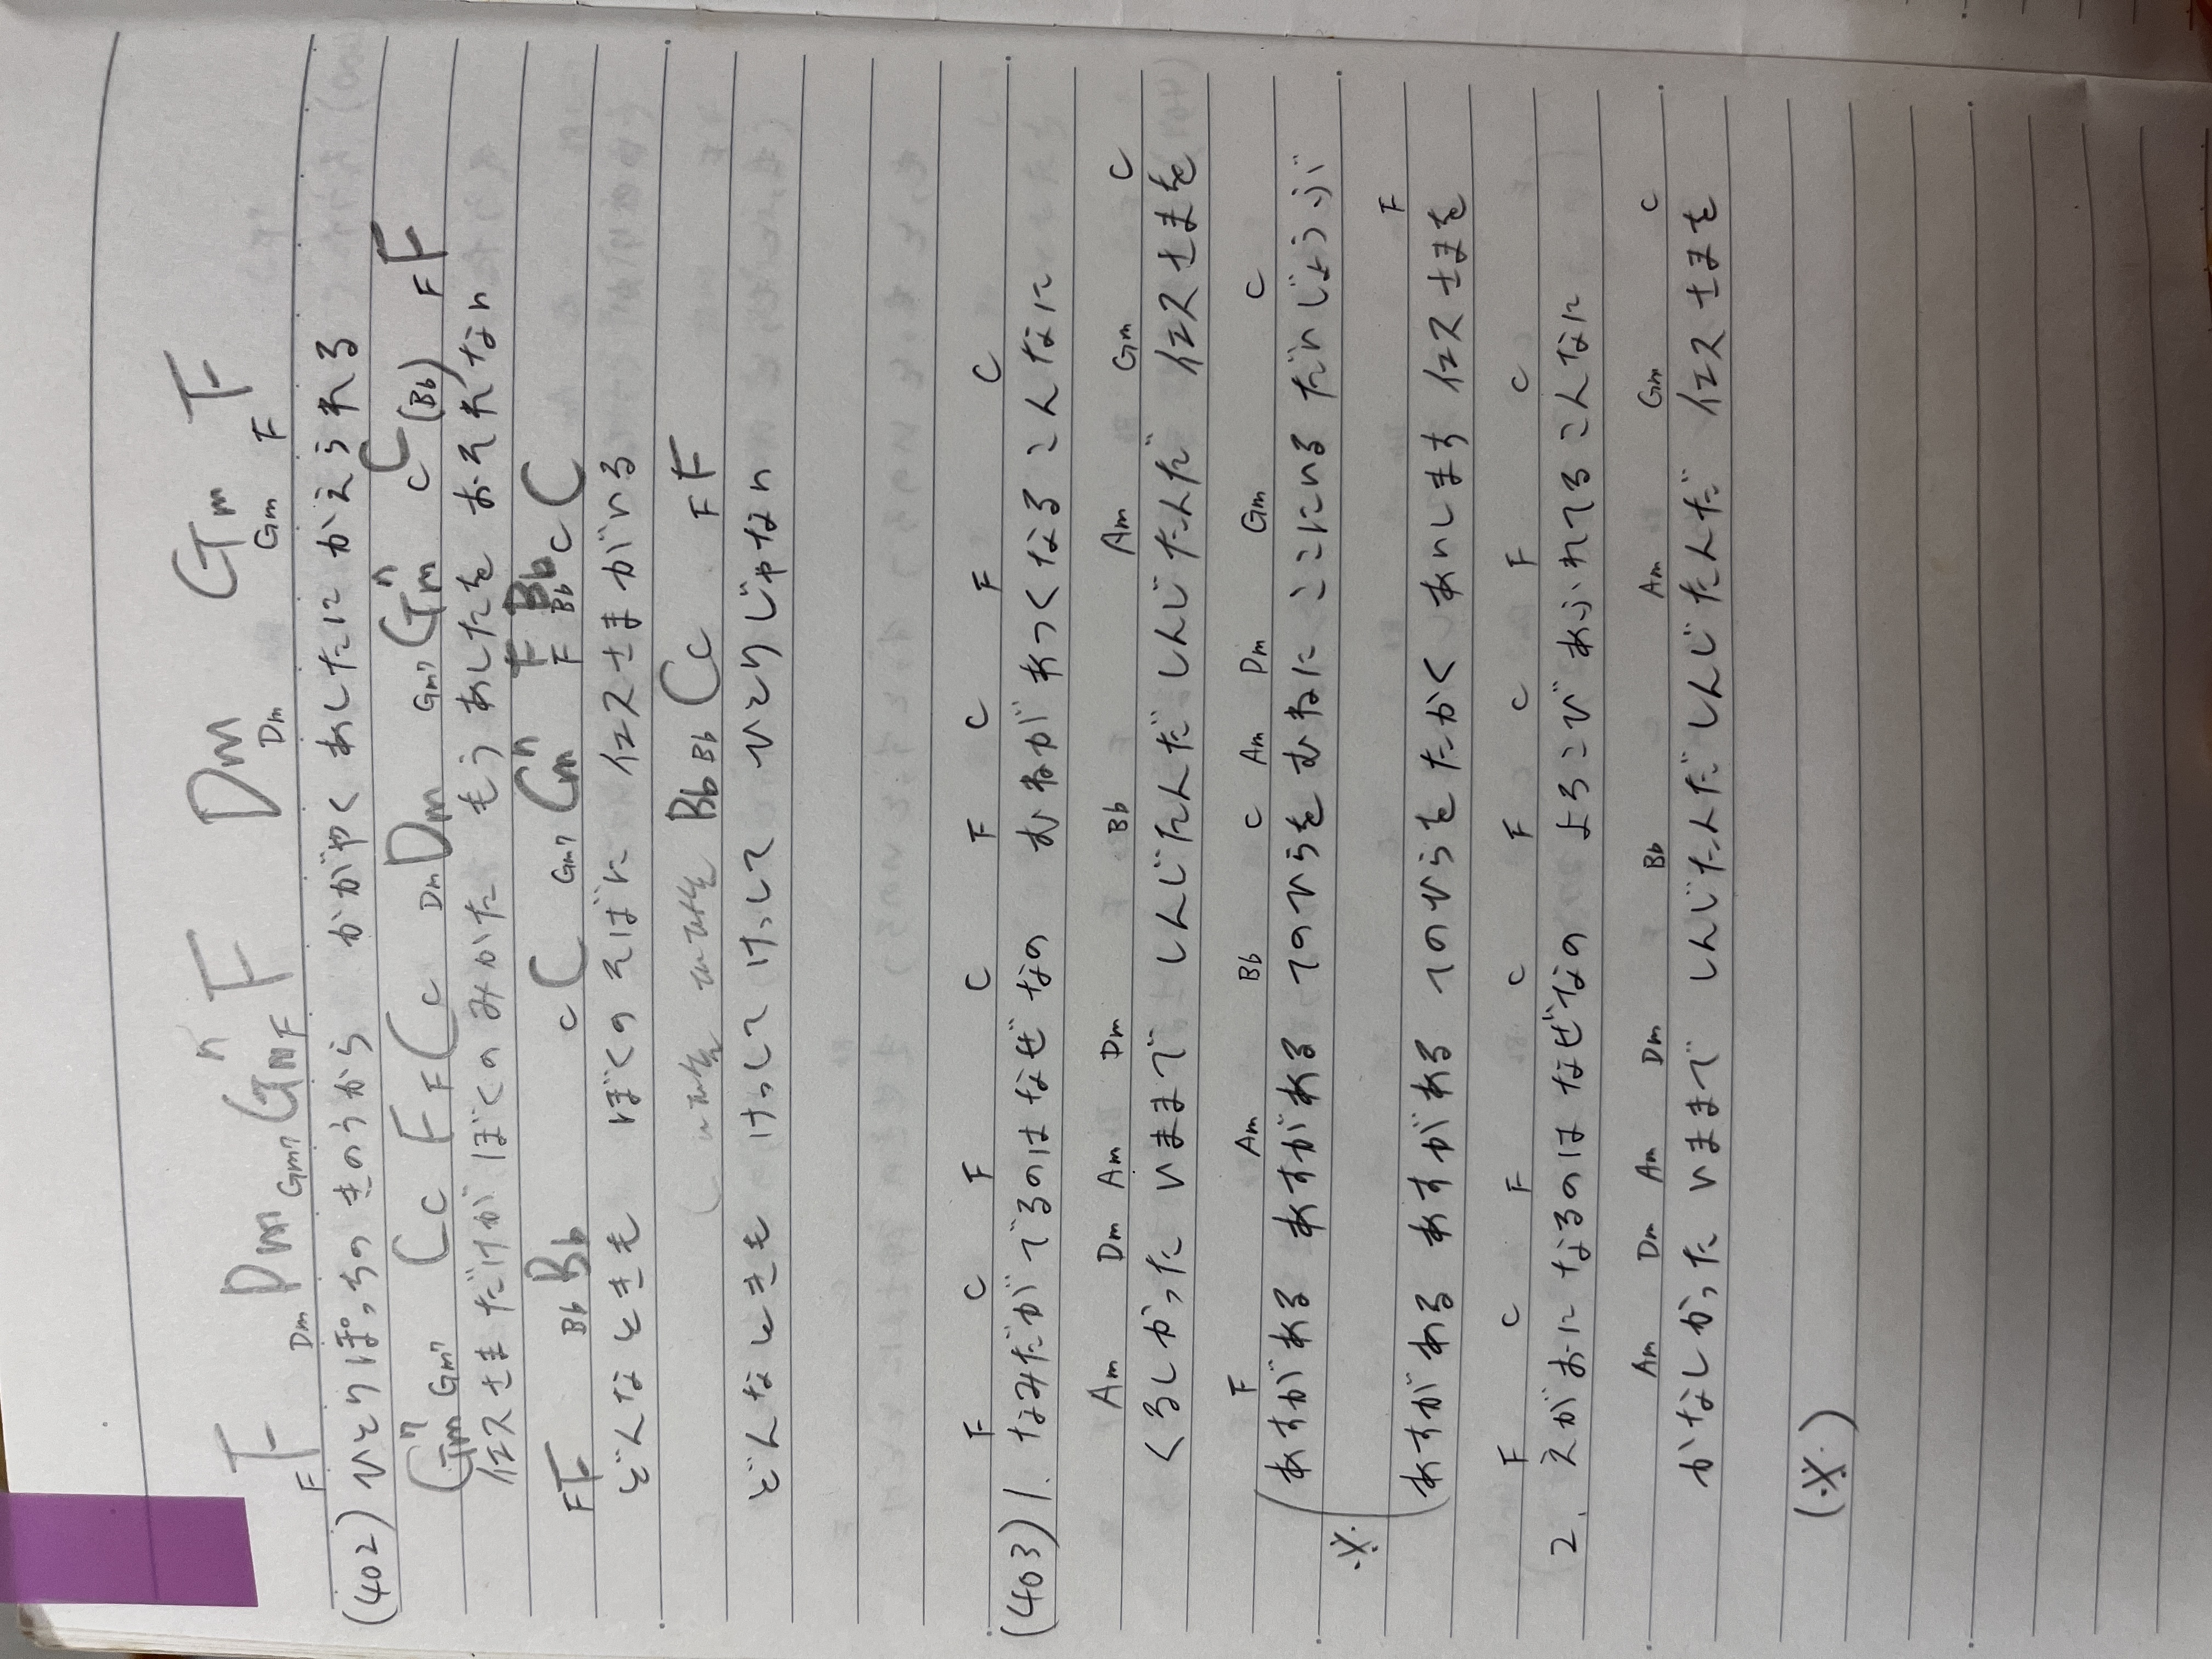 F Dm Gm7 F Dm Gm F
F Dm Gm7 F Dm Gm F
(402) ひとりぼっちの きのうから かがやく あしたに かえられる
Gm7 C F C Dm Gm7 C F
Gm7 C F C Dm Gm7 C (Bb) F
イエスさま だけが ぼくの みかた もう あしたを おそれない
F Bb C Gm7 F Bb C
F Bb C Gm7 F Bb C
どんなときも ぼくの そばに イエスさまが いる
Bb C F
Bb C F
どんなときも けっして けっして ひとりじゃない
F C F C F C F C
(403) 1. なみだが でるのは なぜなの むねが あつくなる こんなに
Am Dm Am Dm Bb Am Gm C
くるしかった いままで しんじたんだ しんじたんだ イエスさまを
F Am Bb C Am Dm Gm C
※ (あすがある あすがある てのひらを むねに ここにいる だいじょうぶ
F
あすがある あすがある てのひらを たかく あいします イエスさまを
F C F C F C F C
2. えがおに なるのは なぜなの よろこび あふれてる こんなに
Am Dm Am Dm Bb Am Gm C
かなしかった いままで しんじたんだ しんじたんだ イエスさまを
(※)